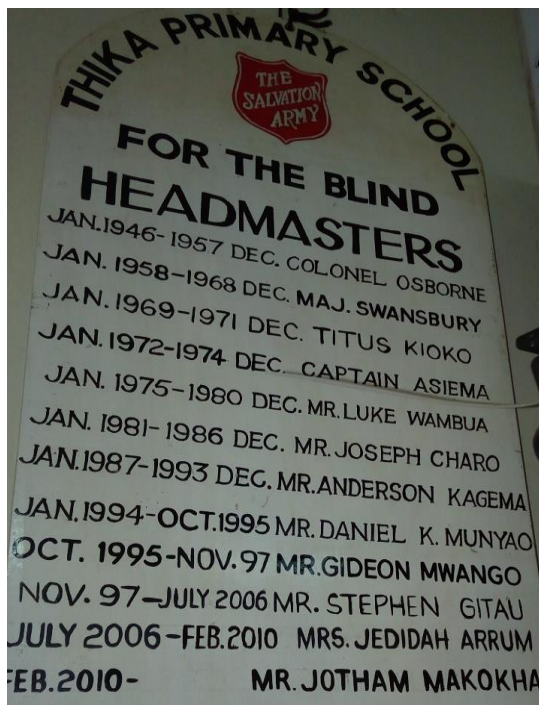 THIKA PRIMARY SCHOOL
THE
SALVATION
ARMY
FOR THE BLIND
HEADMASTERS
JAN.1946-1957 DEC. COLONEL OSBORNE
JAN. 1958-1968 DEC. MAJ. SWANSBURY
JAN. 1969-1971 DEC. TITUS KIOKO
JAN. 1972-1974 DEC. CAPTAIN ASIEMA
JAN. 1975-1980 DEC. MR. LUKE WAMBUA
JAN. 1981-1986 DEC. MR. JOSEPH CHARO
JAN.1987-1993 DEC. MR.ANDERSON KAGEMA
JAN.1994-OCT.1995 MR. DANIEL K. MUNYAO
OCT. 1995-NOV.97 MR.GIDEON MWANGO
NOV. 97-JULY 2006 MR. STEPHEN GITAU
JULY 2006-FEB.2010 MRS. JEDIDAH ARRUM
FEB.2010- MR. JOTHAM MAKOKHA